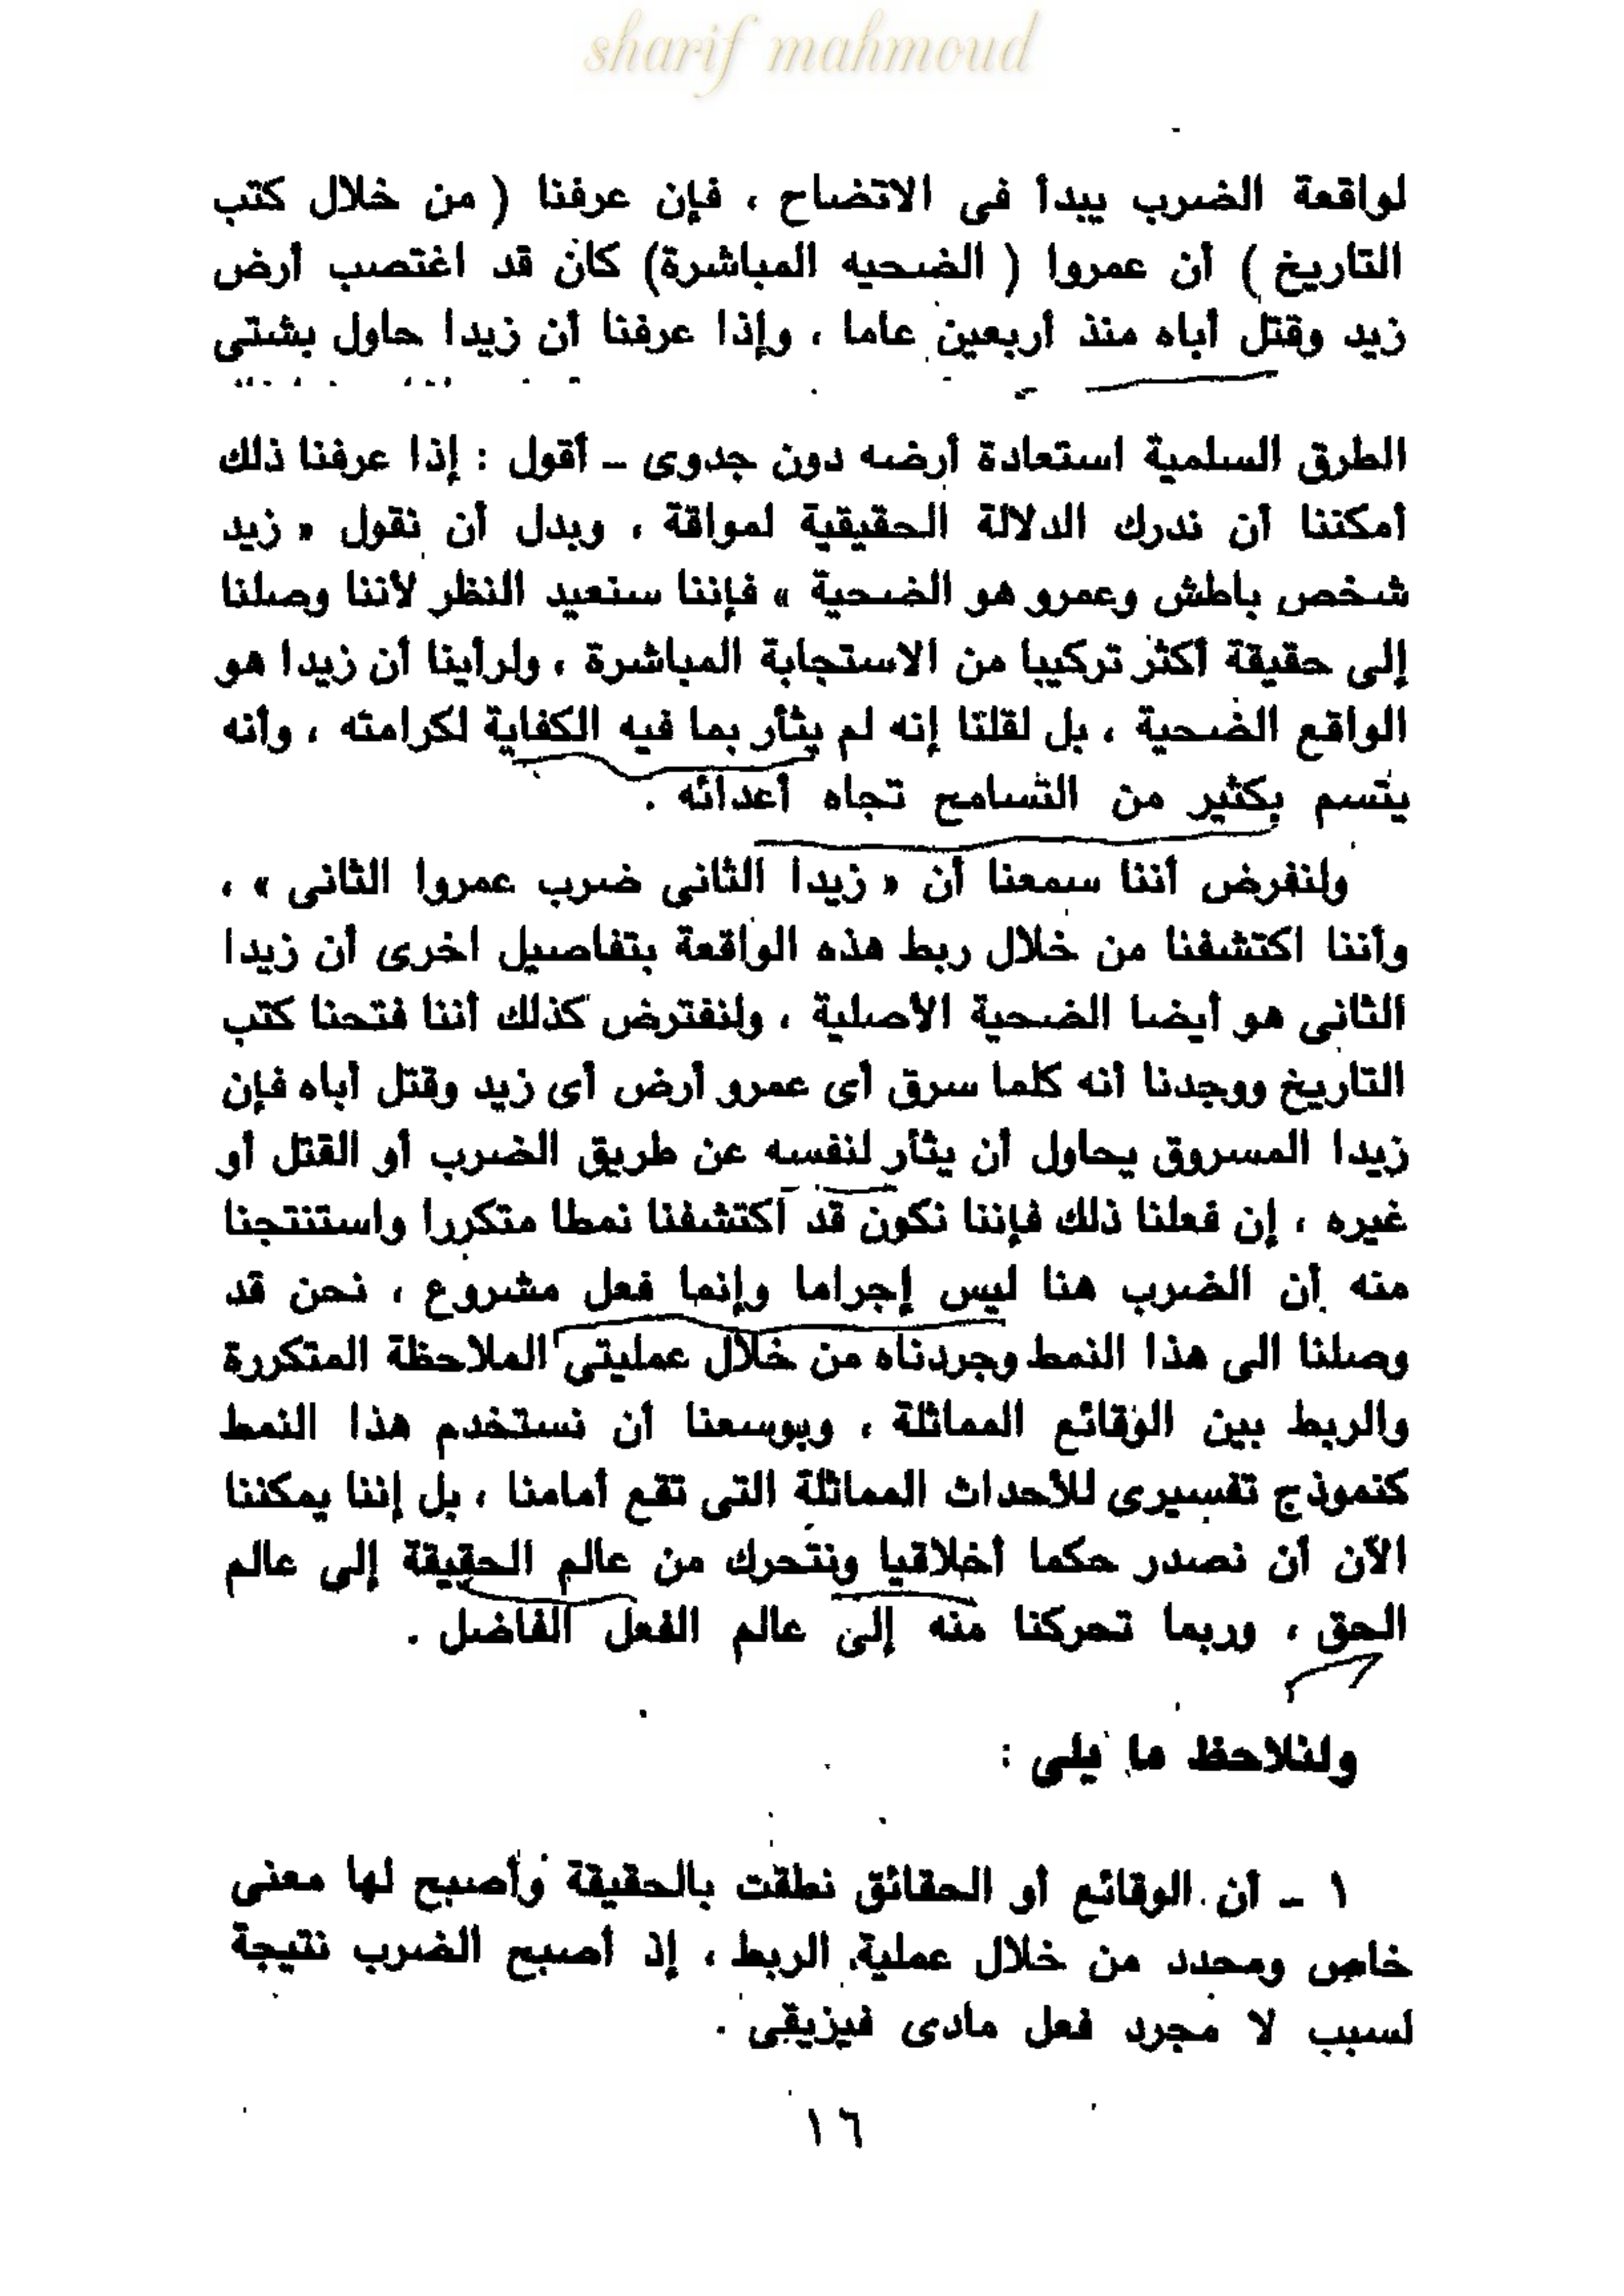 sharif mahmoud
لواقعة الضرب يبدأ فى الاتضاح ، فإن عرفنا ( من خلال كتب
التاريخ ) أن عمروا ( الضحيه المباشرة) كان قد اغتصب أرض
زيد وقتل أباه منذ أربعين عاما ، وإذا عرفنا أن زيدا حاول بشتى
الطرق السلمية استعادة أرضه دون جدوى – أقول : إذا عرفنا ذلك
أمكننا أن ندرك الدلالة الحقيقية لمواقة ، وبدل أن نقول « زيد
شخص باطش وعمرو هو الضحية » فإننا سنعيد النظر لأننا وصلنا
إلى حقيقة أكثر تركيبا من الاستجابة المباشرة ، ولرأينا أن زيدا هو
الواقع الضحية ، بل لقلنا إنه لم يثأر بما فيه الكفاية لكرامته ، وأنه
يتسم بكثير من التسامح تجاه أعدائه .
ولنفرض أننا سمعنا أن « زيدا الثانى ضرب عمروا الثانى » ،
وأننا اكتشفنا من خلال ربط هذه الواقعة بتفاصيل اخرى أن زيدا
الثانى هو أيضا الضحية الأصلية ، ولنفترض كذلك أننا فتحنا كتب
التاريخ ووجدنا أنه كلما سرق أى عمرو أرض أى زيد وقتل أباه فإن
زيدا المسروق يحاول أن يثأر لنفسه عن طريق الضرب أو القتل أو
غيره ، إن فعلنا ذلك فإننا نكون قد اكتشفنا نمطا متكررا واستنتجنا
منه أن الضرب هنا ليس إجراما وإنما فعل مشروع ، نحن قد
وصلنا الى هذا النمط وجردناه من خلال عمليتى الملاحظة المتكررة
والربط بين الوقائع المماثلة ، وبوسعنا أن نستخدم هذا النمط
كنموذج تفسيرى للأحداث المماثلة التى تقع أمامنا ، بل إننا يمكننا
الآن أن نصدر حكما أخلاقيا ونتحرك من عالم الحقيقة إلى عالم
الحق ، وربما تحركنا منه إلى عالم الفعل الفاضل .
ولنلاحظ ما يلى :
١ – أن الوقائع أو الحقائق نطقت بالحقيقة وأصبح لها معنى
خاص ومحدد من خلال عملية الربط ، إذ أصبح الضرب نتيجة
لسبب لا مجرد فعل مادى فيزيقى .
١٦